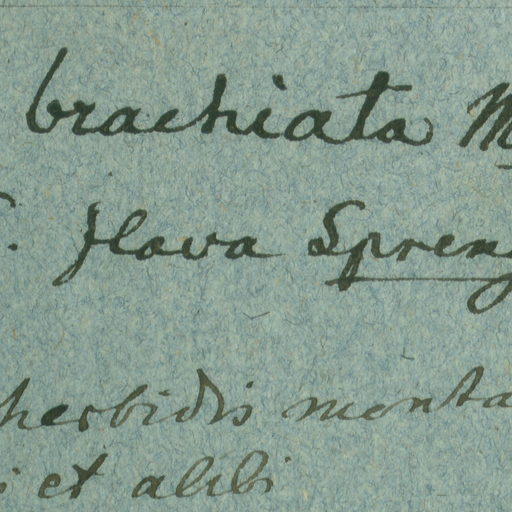 brachiata M
. flava Spreng
herbidis monta
i et alibi